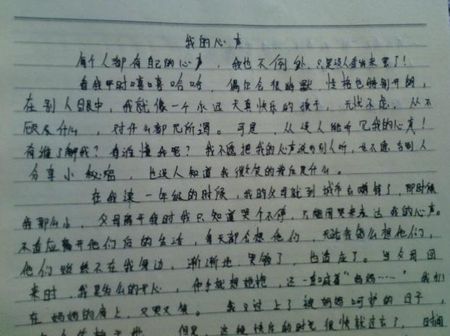 我的心声
每个人都有自己的心声,我也不例外,只是没人看出来罢了!
看我平时嘻嘻哈哈,偶尔会很幽默,性格也特别开朗,
在别人眼中,我就像一个永远天真快乐的孩子,无忧不虑,从不
什么,对什么都无所谓。可是,从没人能听见我的心声!
有谁了解我?有谁懂我呢?我不愿把我的心声说给别人听,也不愿与别人
分享小秘密,也没人知道我微笑的背后是什么。
在我读一年级的时候,我的父母就到城市去赚钱了,那时候
我那么小,父母离开我时我只知道哭个不停,只能用哭来表达我的心声。
不适应离开他们后的生活,每天都会想他们,无论我怎么想他们,
他们始终不在我身边,渐渐地,哭够了,也适应了。当父母回
来时,我是多么的开心,伸手就想她抱,这一刻喊着“妈妈……”我扑
在妈妈的身上,又哭又笑。我又过上了被妈妈呵护的日子,
但是,这种快乐的时光很快就过去了,